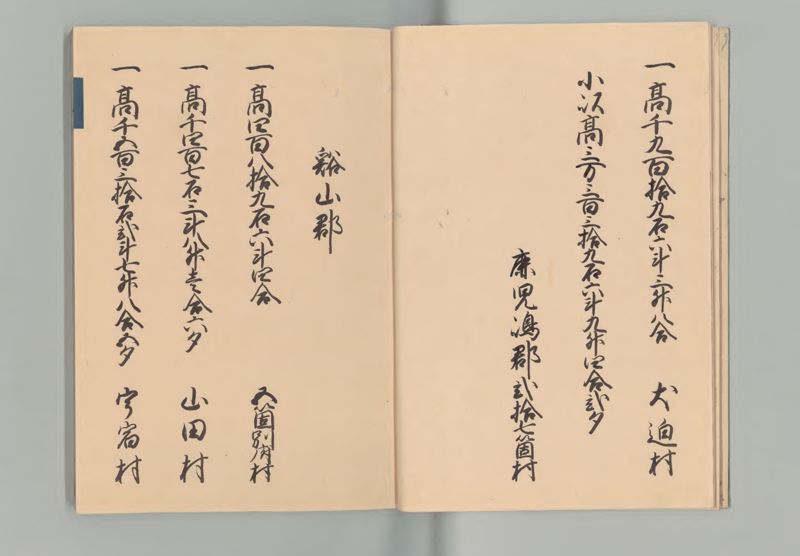 一高千九百拾九石六斗三升八合 犬迫村
小以高三万三百三拾九石六斗九升四合弐夕
鹿児嶋郡弐拾七箇村
谿山郡
一高四百八拾九石六斗四合 五箇別府村
一高千四百七石三斗八升壱合六夕 山田村
一高千五百三拾石弐斗七升八合五夕 宇宿村